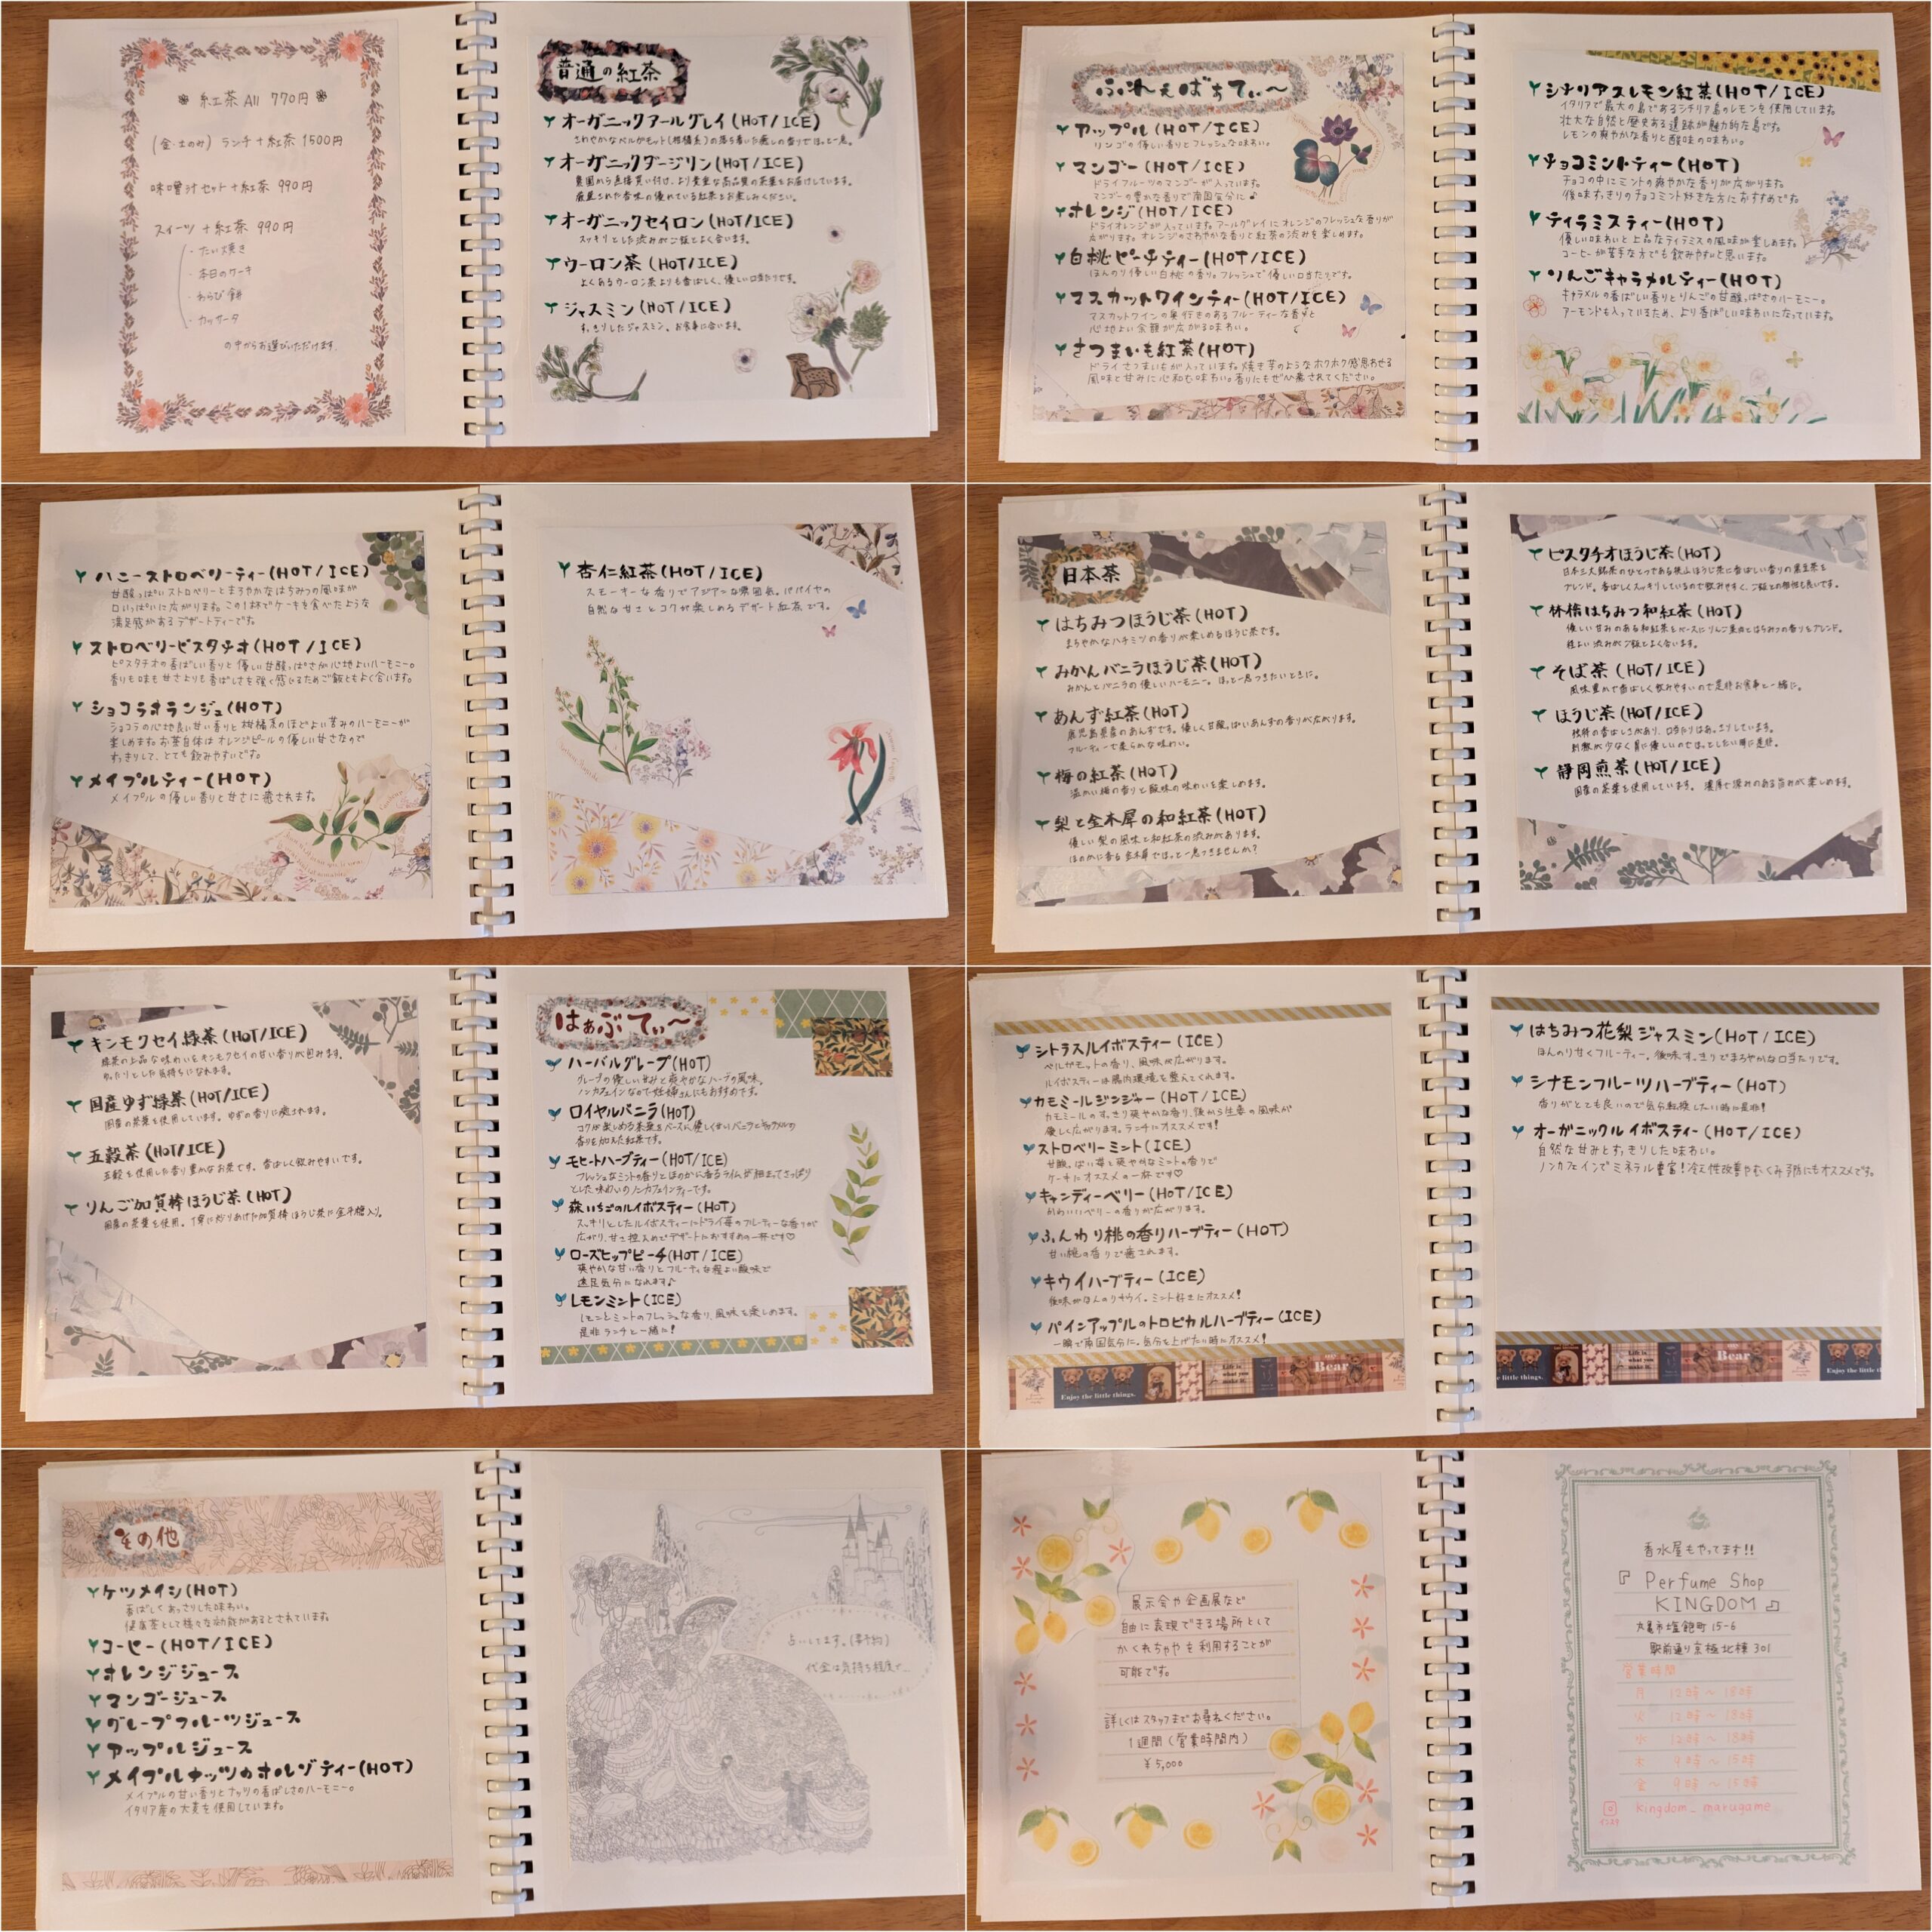 紅茶 All 770円
(金・土のみ) ランチ+紅茶 1500円
味噌汁セット+紅茶 990円
スイーツ+紅茶 990円
・たい焼き
・本日のケーキ
・わらび餅
・カッサータ
の中からお選びいただけます。
普通の紅茶
オーガニックアールグレイ(HOT/ICE)
さわやかなベルガモット(柑橘系)の落ち着いた癒しの香りでほっと一息。
オーガニックダージリン(HOT/ICE)
農園から直接買い付け、より貴重な高品質の茶葉をお届けしています。
厳選された香味の優れている紅茶をお楽しみください。
オーガニックセイロン(HOT/ICE)
スッキリとした渋みがご飯とよく合います。
ウーロン茶(HOT/ICE)
よくあるウーロン茶よりも香ばしく、優しい口当たりです。
ジャスミン(HOT/ICE)
すっきりしたジャスミン。お食事に合います。
ふれぇばぁてぃ〜
アップル(HOT/ICE)
リンゴの優しい香りとフレッシュな味わい。
マンゴー(HOT/ICE)
ドライフルーツのマンゴーが入っています。
マンゴーの豊かな香りで南国気分に♪
オレンジ(HOT/ICE)
ドライオレンジが入っています。アールグレイにオレンジのフレッシュな香りが
広がります。オレンジのさわやかな香りと紅茶の渋みを楽しめます。
白桃ピーチティー(HOT/ICE)
ほんのり優しい白桃の香り。フレッシュで優しい口当たりです。
マスカットワインティー(HOT/ICE)
マスカットワインの奥行きのあるフルーティーな香りと
心地よい余韻が広がる味わい。
さつまいも紅茶(HOT)
ドライさつまいもが入っています。焼き芋のようなホクホク感思わせる
風味と甘みに心和む味わい。香りにもぜひ癒されてください。
シチリアスレモン紅茶(HOT/ICE)
イタリアで最大の島であるシチリア島のレモンを使用しています。
壮大な自然と歴史ある遺跡が魅力的な島です。
レモンの爽やかな香りと酸味の味わい。
チョコミントティー(HOT)
チョコの中にミントの爽やかな香りが広がります。
後味すっきりのチョコミント好きな方におすすめです。
ティラミスティー(HOT)
優しい味わいと上品なティラミスの風味が楽しめます。
コーヒーが苦手な方でも飲みやすいと思います。
りんごキャラメルティー(HOT)
キャラメルの香ばしい香りとりんごの甘酸っぱさのハーモニー。
アーモンドも入っているため、より香ばしい味わいになっています。
ハニーストロベリーティー(HOT/ICE)
甘酸っぱいストロベリーとまろやかなはちみつの風味が
口いっぱいに広がります。この1杯でケーキを食べたような
満足感があるデザートティーです。
ストロベリーピスタチオ(HOT/ICE)
ピスタチオの香ばしい香りと優しい甘酸っぱさが心地よいハーモニー。
香りも味も甘さよりも香ばしさを強く感じるためご飯ともよく合います。
ショコラオランジュ(HOT)
ショコラの心地良い甘い香りと柑橘系のほどよい苦みのハーモニーが
楽しめます。お茶自体はオレンジピールの優しい甘さなので
すっきりして、とても飲みやすいです。
メイプルティー(HOT)
メイプルの優しい香りと甘さに癒されます。
杏仁紅茶(HOT/ICE)
スモーキーな香りでアジアンな雰囲気。パパイヤの
自然な甘さとコクが楽しめるデザート紅茶です。
日本茶
はちみつほうじ茶(HOT)
まろやかなハチミツの香りが楽しめるほうじ茶です。
みかんバニラほうじ茶(HOT)
みかんとバニラの優しいハーモニー。ほっと一息つきたいときに。
あんず紅茶(HOT)
鹿児島県産のあんずです。優しく甘酸っぱいあんずの香りが広がります。
フルーティーで柔らかな味わい。
梅の紅茶(HOT)
温かい梅の香りと酸味の味わいを楽しめます。
梨と金木犀の和紅茶(HOT)
優しい梨の風味と和紅茶の渋みがあります。
ほのかに香る金木犀でほっと一息つきませんか?
ピスタチオほうじ茶(HOT)
日本三大銘茶のひとつである狭山ほうじ茶に香ばしい香りの黒豆茶を
ブレンド。香ばしくスッキリしているので飲みやすく、ご飯との相性も良いです。
林檎はちみつ和紅茶(HOT)
優しい甘みのある和紅茶をベースにりんご果肉とはちみつの香りをブレンド。
程よい渋みがご飯とよく合います。
そば茶(HOT/ICE)
風味豊かで香ばしく飲みやすいので是非お食事と一緒に。
ほうじ茶(HOT/ICE)
独特の香ばしさがあり、口当たりはあっさりしています。
刺激が少なく胃に優しいのでほっとしたい時に是非。
静岡煎茶(HOT/ICE)
国産の茶葉を使用しています。濃厚で深みのある旨みが楽しめます。
キンモクセイ緑茶(HOT/ICE)
緑茶の上品な味わいをキンモクセイの甘い香りが包みます。
ゆったりとした気持ちになれます。
国産ゆず緑茶(HOT/ICE)
国産の茶葉を使用しています。ゆずの香りに癒されます。
五穀茶(HOT/ICE)
五穀を使用した香り豊かなお茶です。香ばしく飲みやすいです。
りんご加賀棒ほうじ茶(HOT)
国産の茶葉を使用。丁寧に炒りあげた加賀棒ほうじ茶に金平糖入り。
はぁぶてぃ〜
ハーバルグレープ(HOT)
グレープの優しい甘みと爽やかなハーブの風味。
ノンカフェインなので妊婦さんにもおすすめです。
ロイヤルバニラ(HOT)
コクが楽しめる茶葉をベースに優しく甘いバニラとキャラメルの
香りを加えた紅茶です。
モヒートハーブティー(HOT/ICE)
フレッシュなミントの香りとほのかに香るライムが相まってさっぱり
とした味わいのノンカフェインティーです。
森いちごのルイボスティー(HOT)
スッキリとしたルイボスティーにドライ苺のフルーティーな香りが
広がり、甘さ控えめでデザートにおすすめの一杯です♡
ローズヒップピーチ(HOT/ICE)
爽やかな甘い香りとフルーティな程よい酸味で
遠足気分になれます♪
レモンミント(ICE)
レモンとミントのフレッシュな香り、風味を楽しめます。
是非ランチと一緒に!
シトラスルイボスティー(ICE)
ベルガモットの香り、風味が広がります。
ルイボスティーは腸内環境を整えてくれます。
カモミールジンジャー(HOT/ICE)
カモミールのすっきり爽やかな香り、後から生姜の風味が
優しく広がります。ランチにオススメです!
ストロベリーミント(ICE)
甘酸っぱい苺と爽やかなミントの香りで
ケーキにオススメの一杯です♡
キャンディーベリー(HOT/ICE)
かわいいベリーの香りが広がります。
ふんわり桃の香りハーブティー(HOT)
甘い桃の香りで癒されます。
キウイハーブティー(ICE)
後味がほんのりキウイ。ミント好きにオススメ!
パインアップルのトロピカルハーブティー(ICE)
一瞬で南国気分に。気分を上げたい時にオススメ!
Enjoy the little things.
Life is what you make it.
Bear
はちみつ花梨ジャスミン(HOT/ICE)
ほんのり甘くフルーティー。後味すっきりでまろやかな口当たりです。
シナモンフルーツハーブティー(HOT)
香りがとても良いので気分転換したい時に是非!
オーガニックルイボスティー(HOT/ICE)
自然な甘みとすっきりした味わい。
ノンカフェインでミネラル豊富!冷え性改善やむくみ予防にもオススメです。
e little things.
Life is what you make it.
Bear
Enjoy the litt
その他
ケツメイシ(HOT)
香ばしくあっさりした味わい。
健康茶として様々な効能があるとされています。
コーヒー(HOT/ICE)
オレンジジュース
マンゴージュース
グレープフルーツジュース
アップルジュース
メイプルナッツのオルゾティー(HOT)
メイプルの甘い香りとナッツの香ばしさのハーモニー。
イタリア産の大麦を使用しています。
占いしてます。(予約)
代金は気持ち程度で…
展示会や企画展など
自由に表現できる場所として
かくれちゃやを利用することが
可能です。
詳しくはスタッフまでお尋ねください。
1週間(営業時間内)
¥5,000
香水屋もやってます!!
『Perfume Shop
KINGDOM』
丸亀市塩飽町15-6
駅前通り京極北棟301
営業時間
月 12時〜18時
火 12時〜18時
水 12時〜18時
木 9時〜15時
金 9時〜15時
インスタ
kingdom_marugame